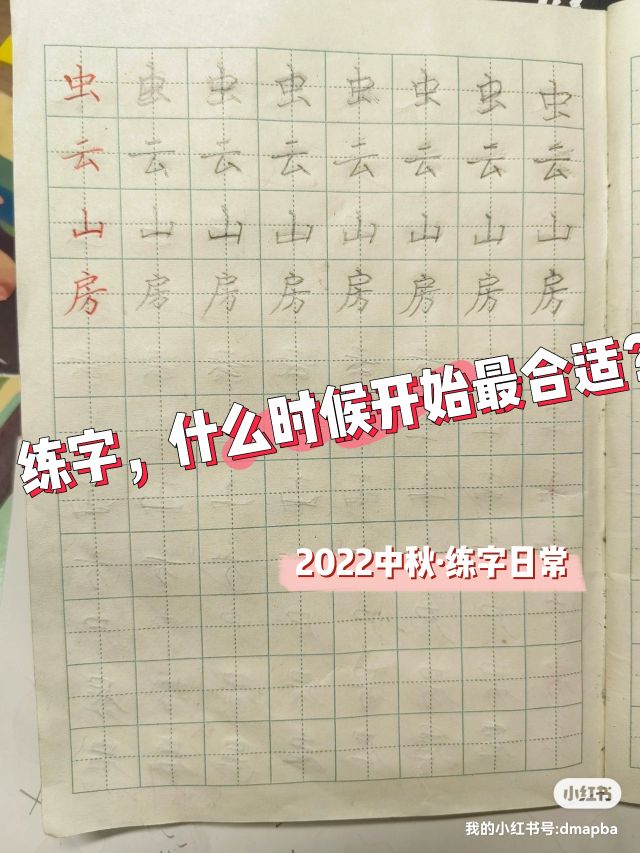 虫虫虫虫虫虫虫虫
云云云云云云云云
山山山山山山山山
房房房房房房房房
练字，什么时候开始最合适？
2022中秋·练字日常
小红书
我的小红书号:dmapba